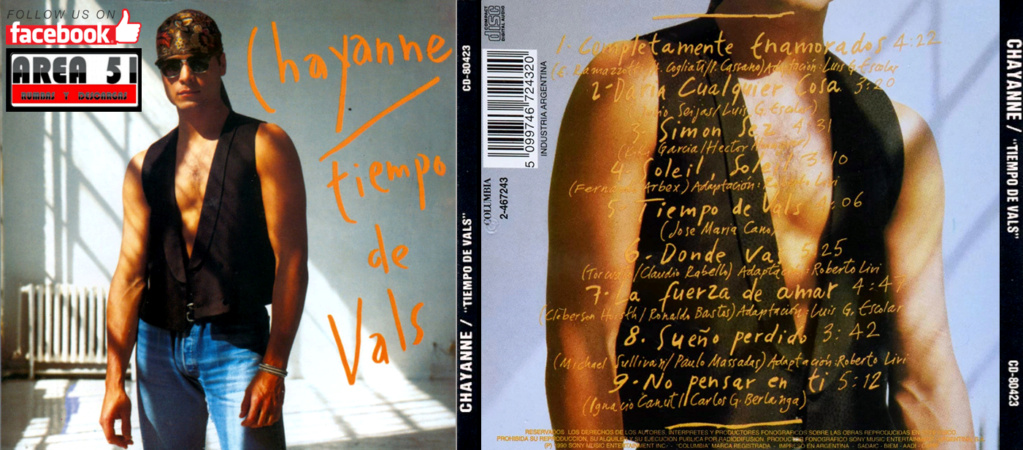 FOLLOW US ON
facebook
AREA 51
Chayanne
tiempo
de
Vals
CD-80423
CHAYANNE / "TIEMPO DE VALS"
COMPACT
disc
5 099746 724320
INDUSTRIA ARGENTINA
COLUMBIA
2-467243
1- Completamente Enamorados 4:22
Adaptación: Luis G. Escolar
2- Daría Cualquier Cosa 3:20
Seijas/Luis G. Escolar
3- Simon Sez 4:31
García/Hector
4- Soleil, Sol 3:10
Arbex) Adaptación: Livi
5- Tiempo de Vals 4:06
(José María Cano)
6- Donde Vas 5:25
/Claudio Rabello) Adaptación: Roberto Livi
7- La fuerza de amar 4:47
/Ronaldo Bastos) Adaptación: Luis G. Escolar
8. Sueño perdido 3:42
(Michael Sullivan/Paulo Massadas) Adaptación: Roberto Livi
9- No pensar en ti 5:12
(Ignacio Canut/Carlos G. Berlanga)
RESERVADOS LOS DERECHOS DE LOS AUTORES, INTERPRETES Y PRODUCTORES FONOGRAFICOS SOBRE LAS OBRAS REPRODUCIDAS EN
PROHIBIDA SU REPRODUCCION, SU ALQUILER Y SU EJECUCION PUBLICA POR RADIODIFUSION. PRODUCTO FONOGRAFICO SONY MUSIC
1990 SONY MUSIC ENTERTAINMENT "COLUMBIA" MARCA REGISTRADA - IMPRESO EN ARGENTINA - SADAIC - BIEM
CHAYANNE / "TIEMPO DE VALS"
CD-80423